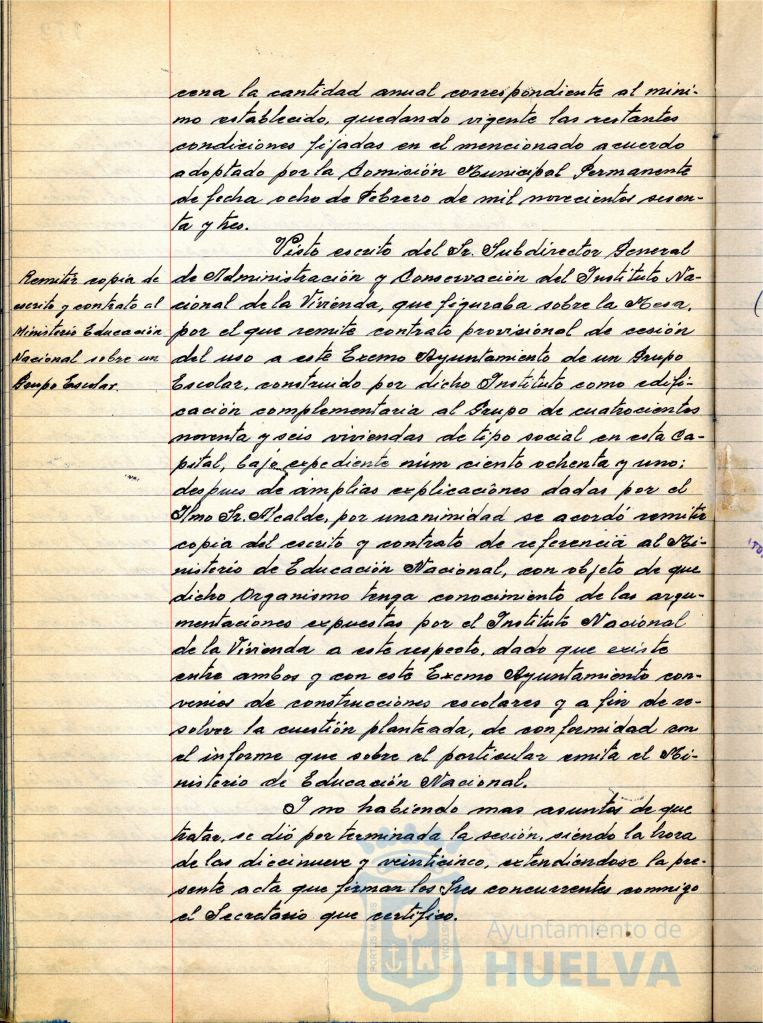 cona la cantidad anual correspondiente al míni-
mo establecido, quedando vigente las restantes
condiciones fijadas en el mencionado acuerdo
adoptado por la Comisión Municipal Permanente
de fecha ocho de Febrero de mil novecientos sesen-
ta y tres.
Visto escrito del Sr. Subdirector General
de Administración y Conservación del Instituto Na-
cional de la Vivienda, que figuraba sobre la Mesa,
por el que remite contrato provisional de cesión
del uso a este Excmo Ayuntamiento de un Grupo
Escolar, construido por dicho Instituto como edifi-
cación complementaria al Grupo de cuatrocientos
noventa y seis viviendas de tipo social en esta Ca-
pital, bajo expediente núm ciento ochenta y uno;
despues de amplias explicaciones dadas por el
Ilmo Sr. Alcalde, por unanimidad se acordó remitir
copia del escrito y contrato de referencia al Mi-
nisterio de Educación Nacional, con objeto de que
dicho Organismo tenga conocimiento de las argu-
mentaciones expuestas por el Instituto Nacional
de la Vivienda a este respecto, dado que existe
entre ambos y con este Excmo Ayuntamiento con-
venios de construcciones escolares y a fin de re-
solver la cuestión planteada, de conformidad con
el informe que sobre el particular emita el Mi-
nisterio de Educación Nacional.
Y no habiendo mas asuntos de que
tratar, se dió por terminada la sesión, siendo la hora
de las diecinueve y veinticinco, extendiéndose la pre-
sente acta que firman los Sres concurrentes conmigo
el Secretario que certifico.
Remitir copia de
escrito y contrato al
Ministerio Educación
Nacional sobre un
Grupo Escolar.
Ayuntamiento de
HUELVA